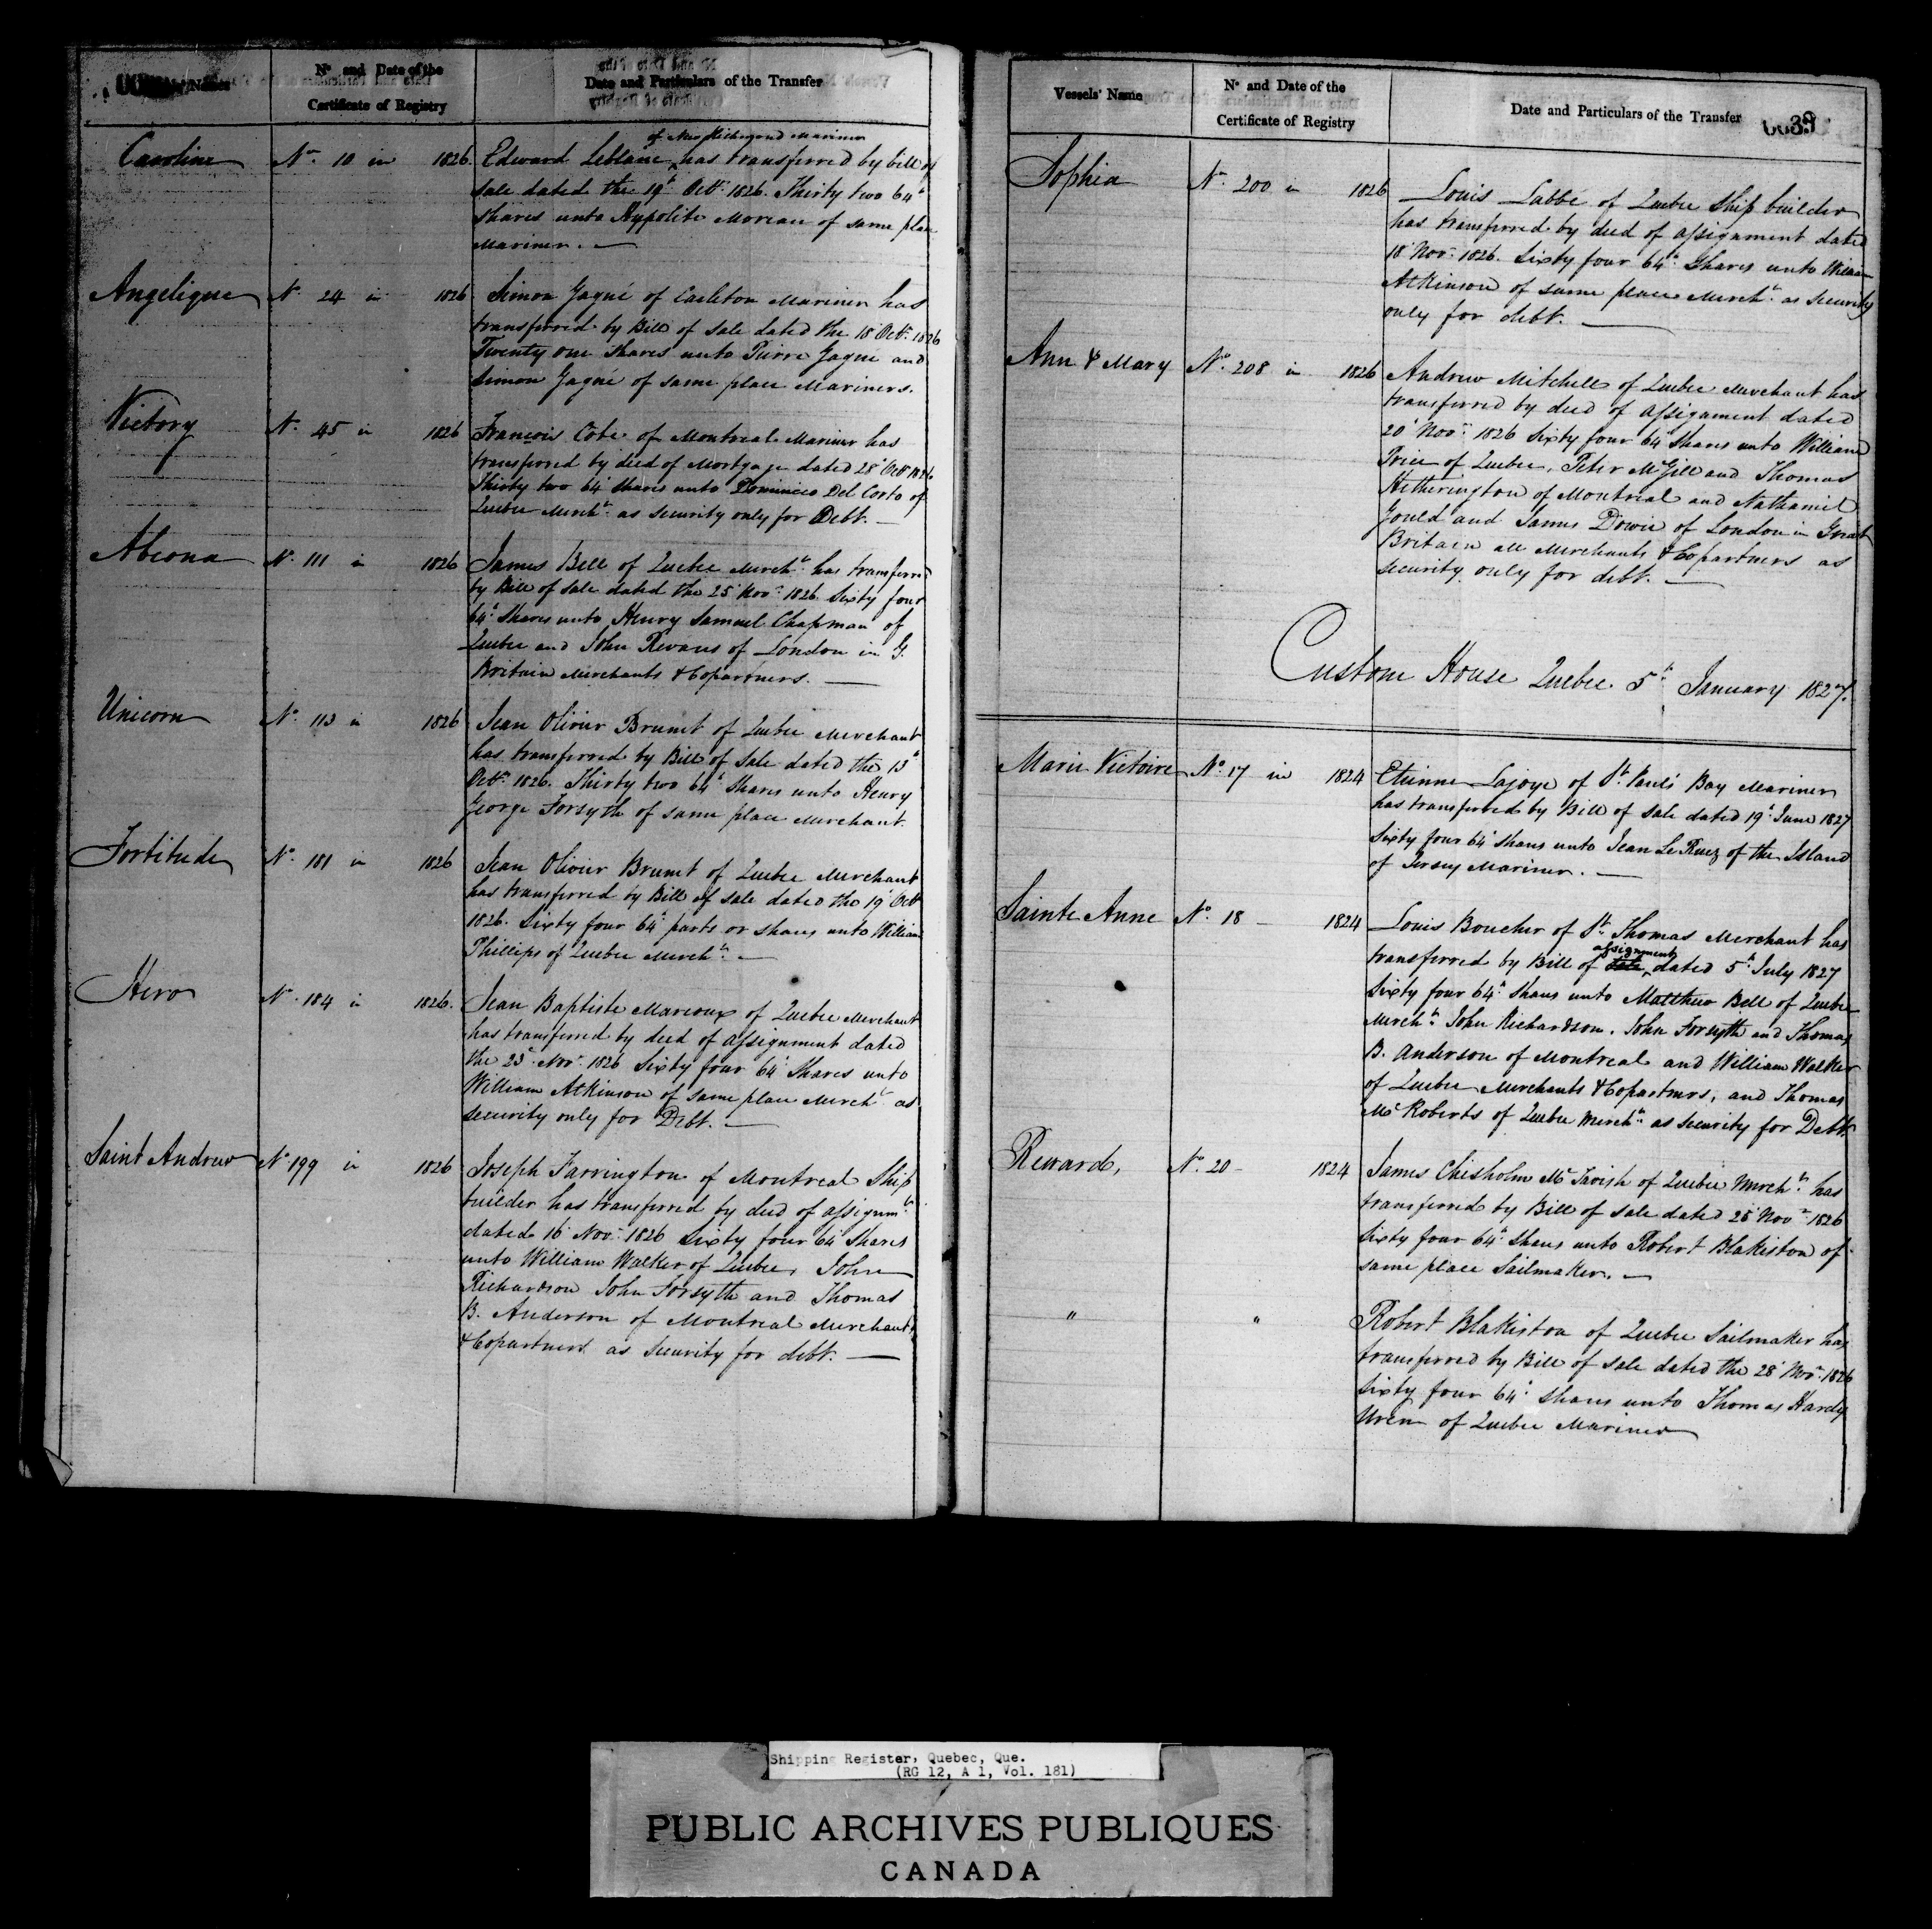 Nº and Date of the
Certificate of Registry
Date and Particulars of the Transfer
Caroline Nº 10 in 1826.
of New Richmond Mariner
Edward Leblanc has transferred by bill of
sale dated the 19th Octr. 1826. Thirty two 64th
shares unto Hypolite Moreau of same place
Mariner.
Angelique Nº 24 in 1826
Simon Gagné of Carleton Mariner has
transferred by Bill of sale dated the 18 Octr. 1826
Twenty one shares unto Pierre Gagné and
Simon Gagné of same place Mariners.
Victory Nº 45 in 1826
Francois Côté of Montreal Mariner has
transferred by deed of Mortgage dated 28 Octr 1826
Thirty two 64th shares unto Dominico Del Corto of
Quebec Mercht. as security only for Debt.
Abeona Nº 111 in 1826
James Bell of Quebec Mercht. has transferred
by Bill of sale dated the 25 Novr. 1826 Sixty four
64th shares unto Henry Samuel Chapman of
Quebec and John Revans of London in G.
Britain Merchants & Copartners.
Unicorn Nº 113 in 1826
Jean Olivier Brunet of Quebec Merchant
has transferred by Bill of Sale dated the 13th
Octr. 1826. Thirty two 64th shares unto Henry
George Forsyth of same place Merchant.
Fortitude Nº 181 in 1826
Jean Olivier Brunet of Quebec Merchant
has transferred by Bill of sale dated the 19 Octr
1826. Sixty four 64th parts or shares unto William
Phillips of Quebec Mercht.
Hero Nº 184 in 1826.
Jean Baptiste Marcoux of Quebec Merchant
has transferred by deed of assignment dated
the 23d Novr. 1826 Sixty four 64th Shares unto
William Atkinson of same place Mercht. as
security only for Debt.
Saint Andrew Nº 199 in 1826
Joseph Farrington of Montreal Ship
builder has transferred by deed of assignmt.
dated 16 Novr. 1826 Sixty four 64th Shares
unto William Walker of Quebec, John
Richardson John Forsyth and Thomas
B. Anderson of Montreal Merchants
& Copartners as security for debt.
Vessels' Name
Nº and Date of the
Certificate of Registry
Date and Particulars of the Transfer
Sophia Nº 200 in 1826
Louis Labbé of Quebec Ship builder
has transferred by deed of assignment dated
18 Novr. 1826. Sixty four 64th Shares unto William
Atkinson of same place Mercht. as security
only for debt.
Ann & Mary Nº 208 in 1826
Andrew Mitchell of Quebec Merchant has
transferred by deed of assignment dated
20 Novr. 1826 Sixty four 64th Shares unto William
Price of Quebec, Peter McGill and Thomas
Hetherington of Montreal and Nathaniel
Gould and James Dowie of London in Great
Britain all Merchants & Copartners as
security only for debt.
Custom House Quebec 5th January 1827.
Marie Victoire Nº 17 in 1824
Etienne Lajoye of St. Paul's Bay Mariner
has transferred by Bill of sale dated 19th June 1827
Sixty four 64th shares unto Jean Le Ruez of the Island
of Jersey Mariner.
Sainte Anne Nº 18 — 1824
Louis Boucher of St. Thomas Merchant has
assignment
transferred by Bill of sale dated 5th July 1827
Sixty four 64th shares unto Matthew Bell of Quebec
Mercht. John Richardson, John Forsyth and Thomas
B. Anderson of Montreal and William Walker
of Quebec Merchants & Copartners, and Thomas
McRoberts of Quebec Mercht. as security for Debt.
Reward, Nº 20 — 1824
James Chisholm McTavish of Quebec Mercht. has
transferred by Bill of sale dated 25 Novr. 1826
Sixty four 64th shares unto Robert Blakiston of
same place Sailmaker.
" "
Robert Blakiston of Quebec Sailmaker has
transferred by Bill of sale dated the 28 Novr. 1826
Sixty four 64th shares unto Thomas Hardy
Uren of Quebec Mariner
Shipping Register, Quebec, Que.
(RG 12, A 1, Vol. 181)
PUBLIC ARCHIVES PUBLIQUES
CANADA